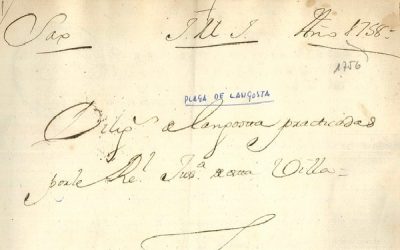 Sax J. M. J. Año 1758=
1756
PLAGA DE LANGOSTA
Dilig.s de langosta practicadas
por le Rl. Jus.a de esta Villa